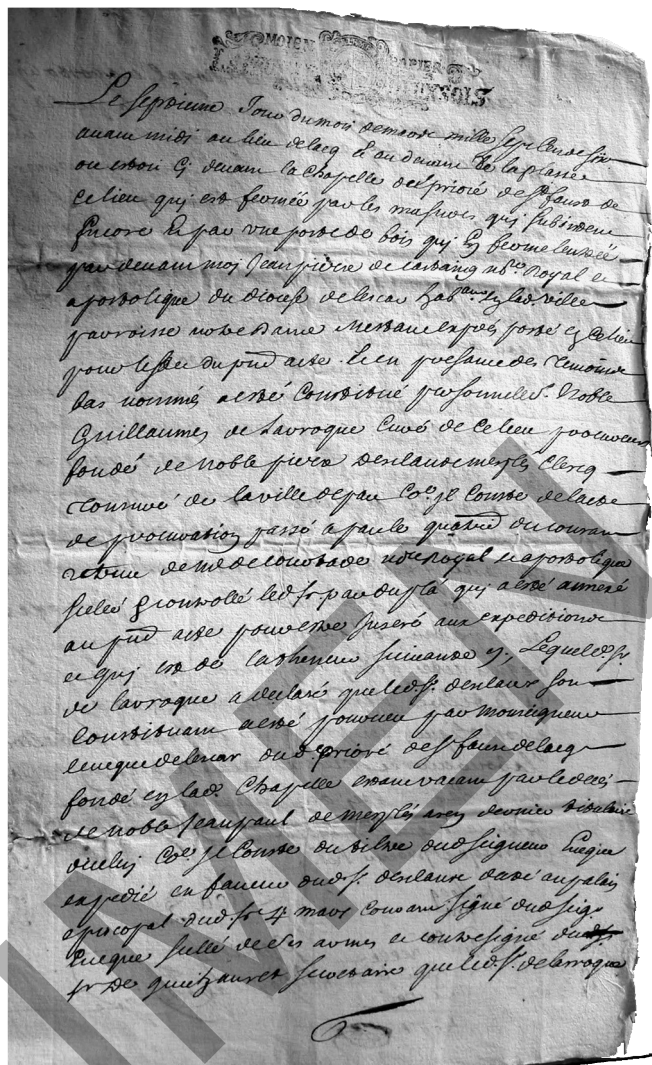 MOIEN PAPIER
Le septieme Jour du mois de mars mille sept cens six
avant midi au lieu de lacq et au devant de la place
ou endroit devant la chapelle du prioré de St faust de
ce lieu quj est fermée par les masures quj subsistent
Encore Et par une porte de bois quj En ferme lentrée
par devant moj Jean pierre de nore Royal et
apostolique du diocese de lescar habant En lad. ville
parroisse notre dame Messane exprés porté En ce lieu
pour leffet du pnt acte. Et en presance des temoins
bas nommés a esté Constitué personnelemt. Noble
Guillaumes de Larroque Curé de ce lieu procureur
fondé de noble pierre desclaux mesplés Clercq
tonsuré de la ville de pau Coe. Jl Conste de lacte
de procuration passé a pau le quatrie du courant
retenu de Me de Courrade nore Royal et apostolique
sellé Controllé led. Jr. par dupla quj a esté annexé
au pnt acte pour estre Inseré aux expeditions
et quj est de la theneur suivante Lequel d. sr.
de larroque a declaré que led. sr. desclaux son
Constituant a esté pourveu par monseigneur
leveque de lescar dud. prioré de St faust de lacq
fondé en lad. Chapelle estant vacant par le decés
de noble Jean paul de mesplés dernier titulaire
dicelluy Coe. Jl Conste du titre dud. seigneur Eveque
expedié en faveur dud. sr. desclaux datté au palais
episcopal dud. Jr. 4 mars Courant signé dud. seigr.
Eveque sellé de ses armes et contresigné du
sr de secretaire que led. sr. de larroque
IMEN